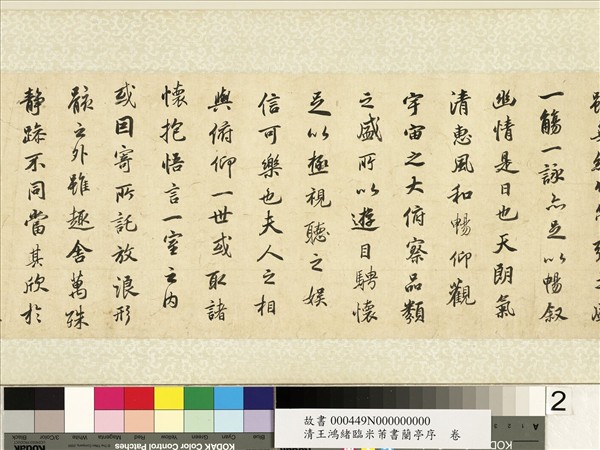 一觴一詠亦足以暢叙
幽情是日也天朗氣
清惠風和暢仰觀
宇宙之大俯察品類
之盛所以遊目騁懷
足以極視聽之娛
信可樂也夫人之相
與俯仰一世或取諸
懷抱悟言一室之内
或因寄所託放浪形
骸之外雖趣舍萬殊
静躁不同當其欣於
2
故書 000449N000000000
清王鴻緒臨米芾書蘭亭序 卷
Blue Cyan Green Yellow Red Magenta White 3/Color Black
KODAK Color Control Patches
Kodak